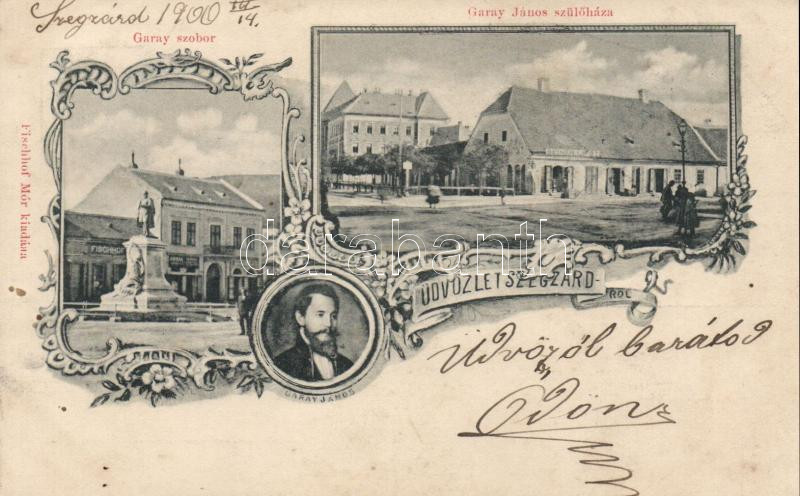 Szegzárd 1900 III/14.
Garay szobor
Garay János szülőháza
Fischhof Mór kiadása
FISCHHOF
darabanth
ÜDVÖZLET SZEGZÁRD-
RÓL
GARAY JÁNOS
Üdvözöl barátod
Ödön